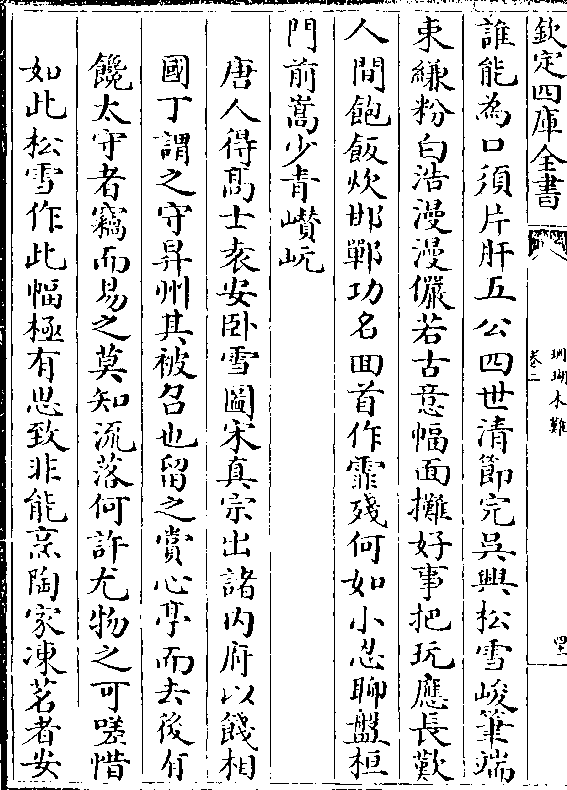 欽定四庫全書
珊瑚木難
卷二
誰能為口須片肝五公四世清節完吳興松雪峻筆端
東縑粉白浩漫漫儼若古意幅面攤好事把玩應長歎
人間飽飯炊邯鄲功名回首作霏殘何如小忍聊盤桓
門前嵩少青巑岏
唐人得髙士袁安卧雪圖宋真宗出諸内府以餞相
國丁謂之守昇州其被召也留之賞心亭而去後有
饞太守者竊而易之莫知流落何許尤物之可嗟惜
如此松雪作此幅極有思致非能烹陶家凍茗者安